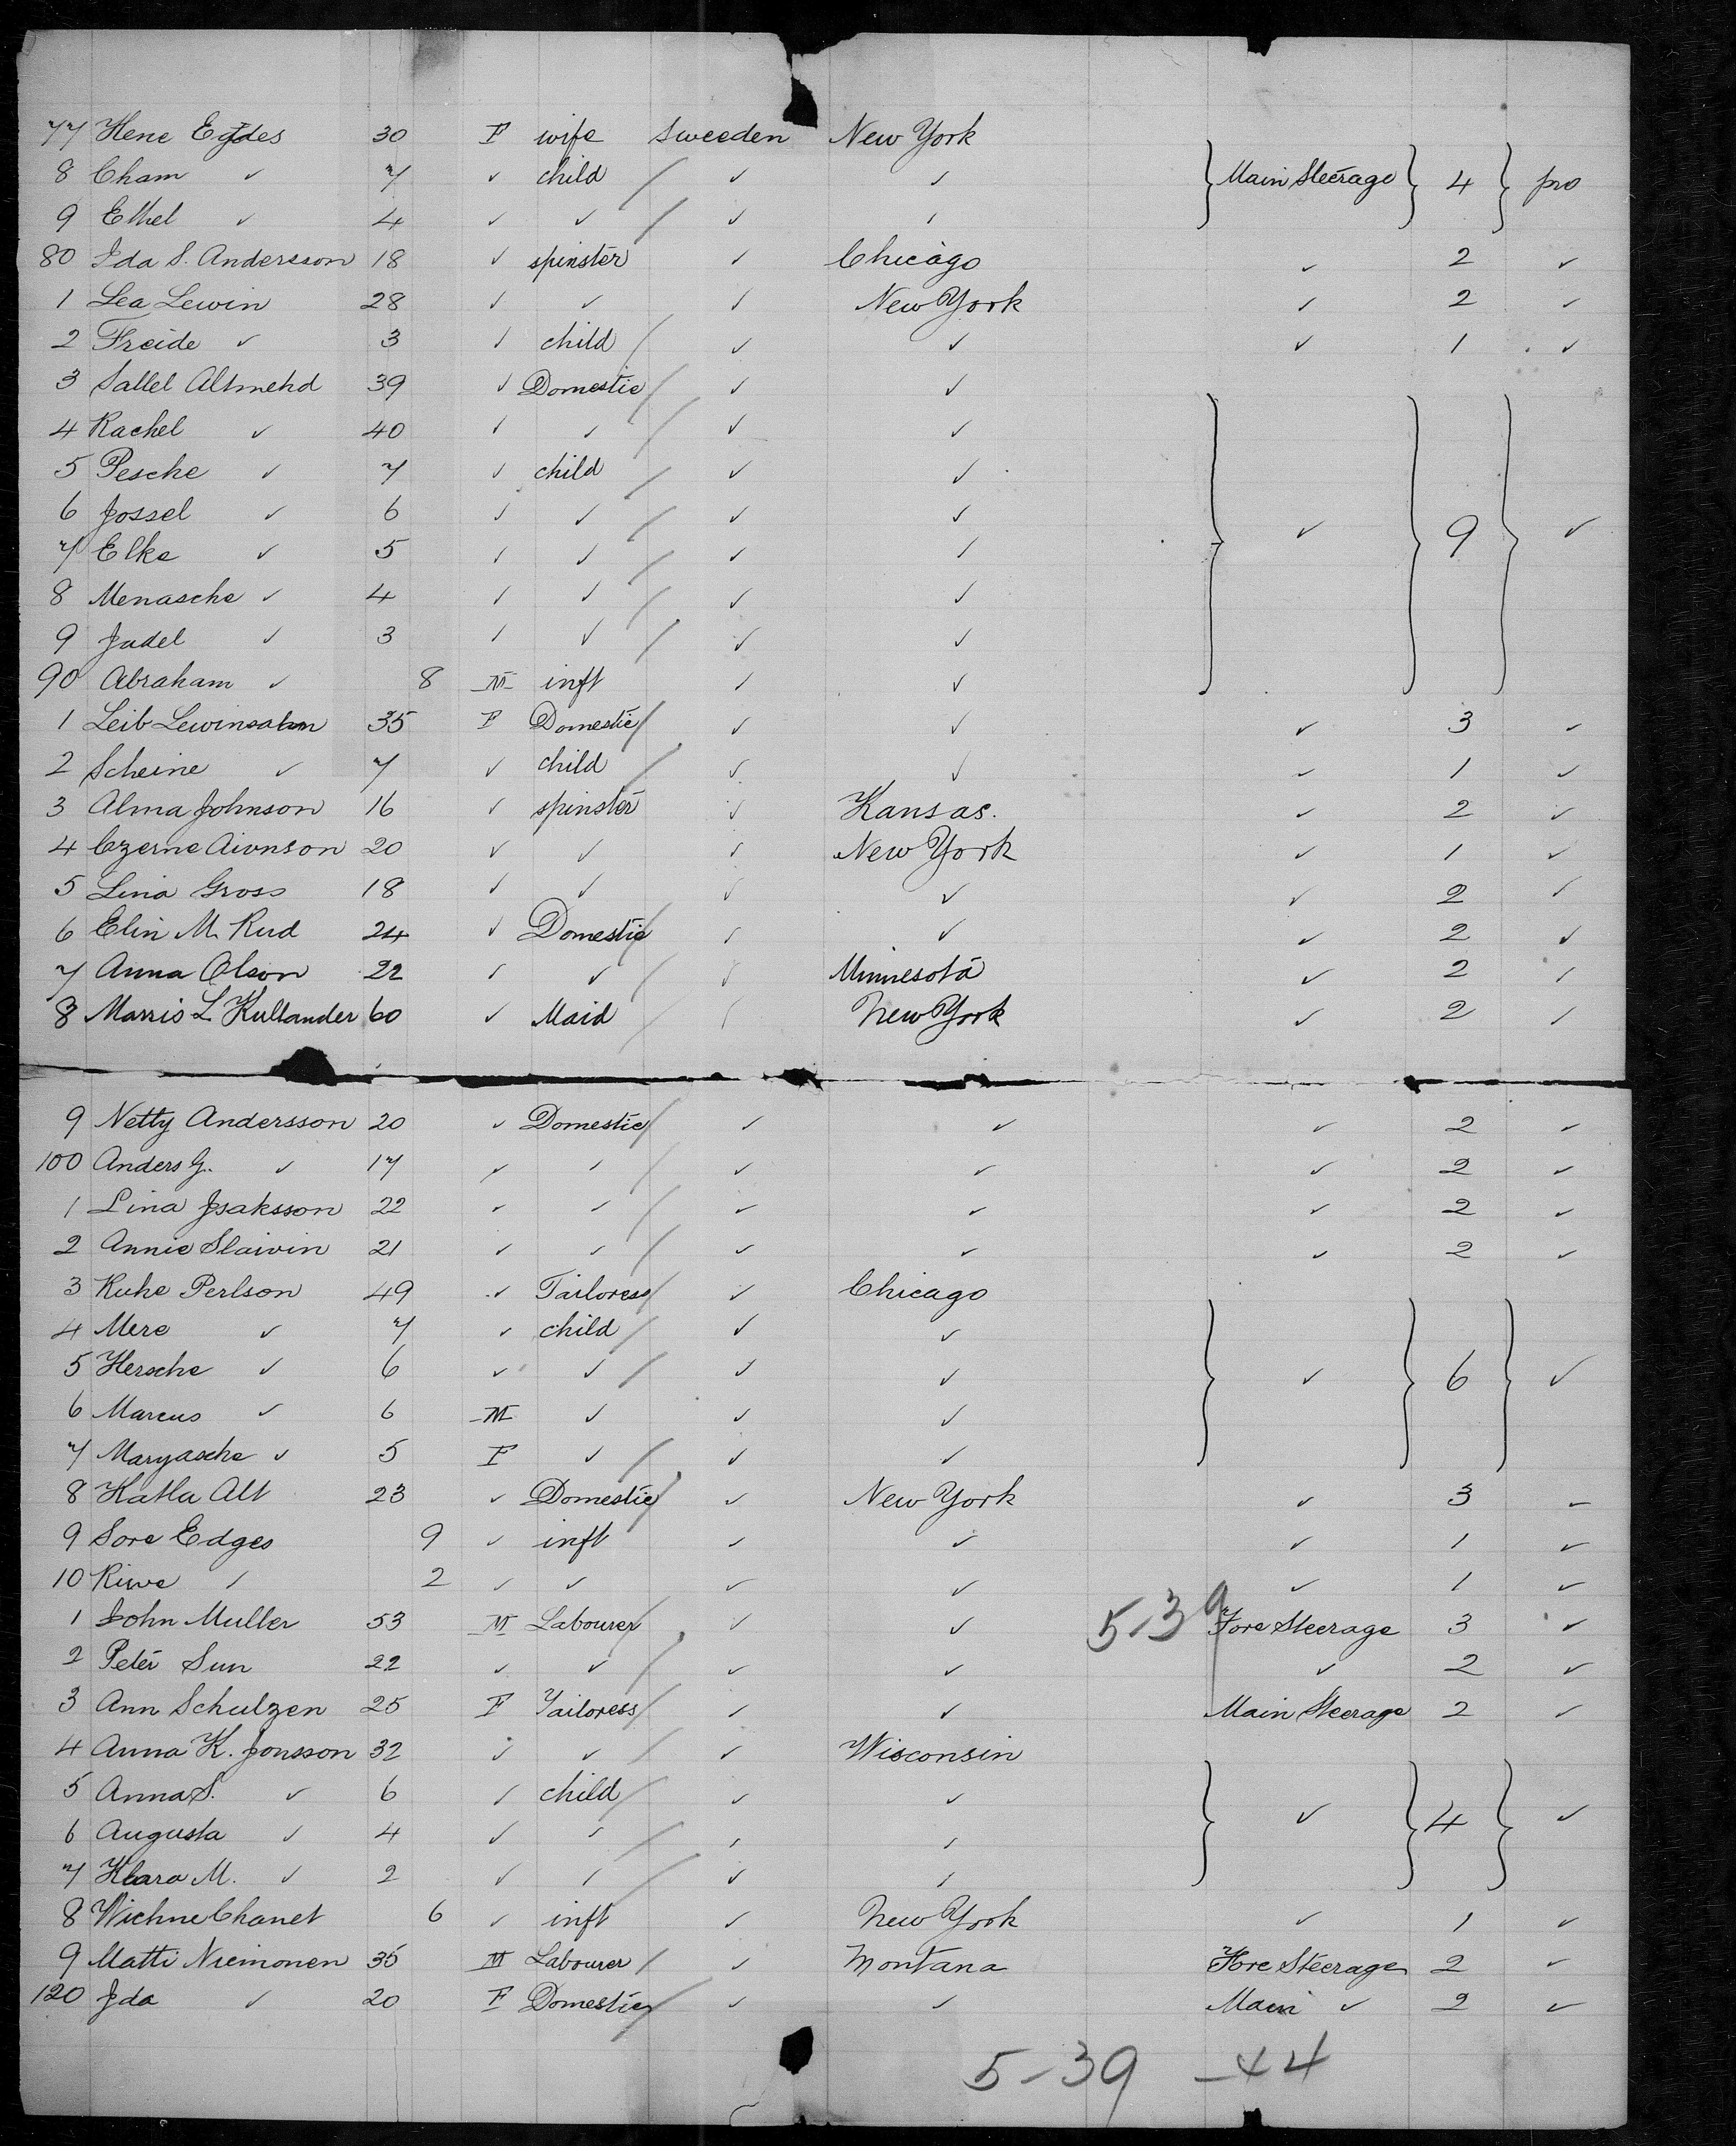 77 Hene Egdes 30 F wife Sweeden New York
8 Cham ✓ 7 ✓ child / ✓ ✓ } Main Steerage } 4 } pro
9 Ethel ✓ 4 ✓ ✓ / ✓ ✓
80 Ida S. Andersson 18 ✓ spinster ✓ Chicago ✓ 2 ✓
1 Lea Lewin 28 ✓ ✓ ✓ New York ✓ 2 ✓
2 Freide ✓ 3 ✓ child / ✓ ✓ ✓ 1 ✓
3 Sallel Altmehd 39 ✓ Domestic / ✓ ✓
4 Rachel ✓ 40 ✓ ✓ / ✓ ✓
5 Pesche ✓ 7 ✓ child / ✓ ✓
6 Jossel ✓ 6 ✓ ✓ / ✓ ✓
7 Elke ✓ 5 ✓ ✓ / ✓ ✓ } ✓ } 9 } ✓
8 Menasche ✓ 4 ✓ ✓ / ✓ ✓
9 Judel ✓ 3 ✓ ✓ / ✓ ✓
90 Abraham ✓ 8 M inft ✓ ✓
1 Leib Lewinsohn 35 F Domestic / ✓ ✓ ✓ 3 ✓
2 Scheine ✓ 7 ✓ child / ✓ ✓ ✓ 1 ✓
3 Alma Johnson 16 ✓ spinster ✓ Kansas. ✓ 2 ✓
4 Czerne Aivnson 20 ✓ ✓ ✓ New York ✓ 1 ✓
5 Lina Gross 18 ✓ ✓ ✓ ✓ ✓ 2 ✓
6 Elin M. Rud 24 ✓ Domestic / ✓ ✓ ✓ 2 ✓
7 Anna Olson 22 ✓ ✓ / ✓ Minnesota ✓ 2 ✓
8 Marris L Kullander 60 ✓ Maid / ✓ New York ✓ 2 ✓
9 Netty Andersson 20 ✓ Domestic / ✓ ✓ ✓ 2 ✓
100 Anders G. ✓ 17 ✓ ✓ / ✓ ✓ ✓ 2 ✓
1 Lina Isaksson 22 ✓ ✓ / ✓ ✓ ✓ 2 ✓
2 Annie Slaivin 21 ✓ ✓ / ✓ ✓ ✓ 2 ✓
3 Ruhe Perlson 49 ✓ Tailoress / ✓ Chicago
4 Mere ✓ 7 ✓ child / ✓ ✓
5 Hersche ✓ 6 ✓ ✓ / ✓ ✓ } ✓ } 6 } ✓
6 Marcus ✓ 6 M ✓ ✓ ✓
7 Maryasche ✓ 5 F ✓ / ✓ ✓
8 Katla Alt 23 ✓ Domestic / ✓ New York ✓ 3 ✓
9 Sore Edges 9 ✓ inft ✓ ✓ ✓ 1 ✓
10 Riwe ✓ 2 ✓ ✓ ✓ ✓ ✓ 1 ✓
1 John Muller 53 M Labourer / ✓ ✓ 5-39 Fore Steerage 3 ✓
2 Peter Sun 22 ✓ ✓ / ✓ ✓ ✓ 2 ✓
3 Ann Schulzen 25 F Tailoress / ✓ ✓ Main Steerage 2 ✓
4 Anna K. Jonsson 32 ✓ ✓ / ✓ Wisconsin
5 Anna S. ✓ 6 ✓ child / ✓ ✓ } ✓ } 4 } ✓
6 Augusta ✓ 4 ✓ ✓ / ✓ ✓
7 Klara M. ✓ 2 ✓ ✓ / ✓ ✓
8 Wichne Chanet 6 ✓ inft ✓ New York ✓ 1 ✓
9 Matti Niemonen 35 M Labourer / ✓ Montana Fore Steerage 2 ✓
120 Ida ✓ 20 F Domestic / ✓ ✓ Main ✓ 2 ✓
5-39 -44